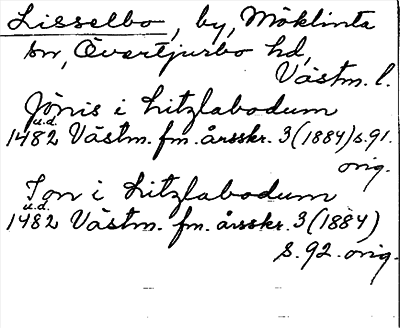 Lisselbo, by, Möklinta
sn, Övertjurbo hd,
Västm. l.
Jönis i Litzlabodum
u.d.
1482 Västm. fm. årsskr. 3 (1884) s. 91.
orig.
Jon i Litzlabodum
u.d.
1482 Västm. fm. årsskr. 3 (1884)
s. 92. orig.